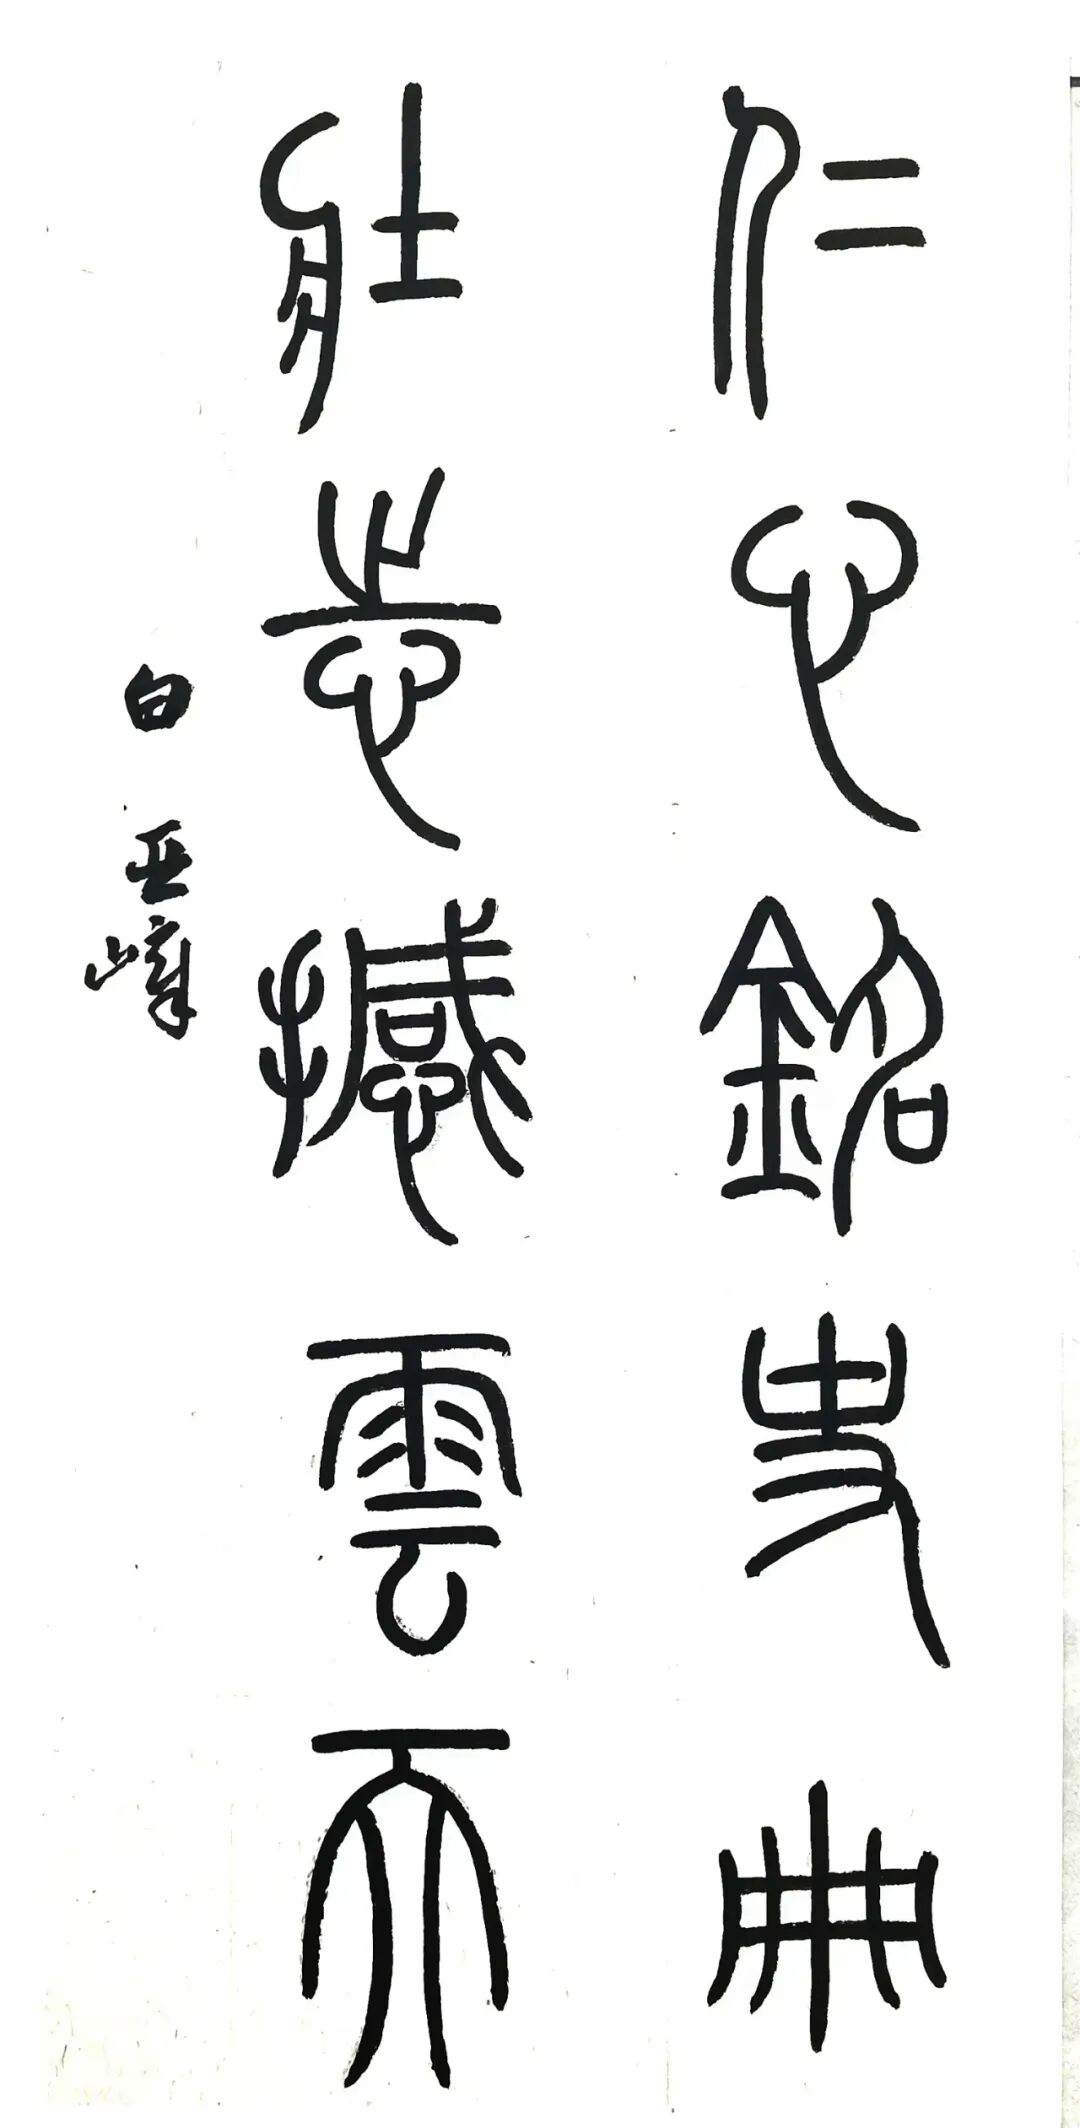 仁心銘史冊
壯志撼雲天
白亚峰